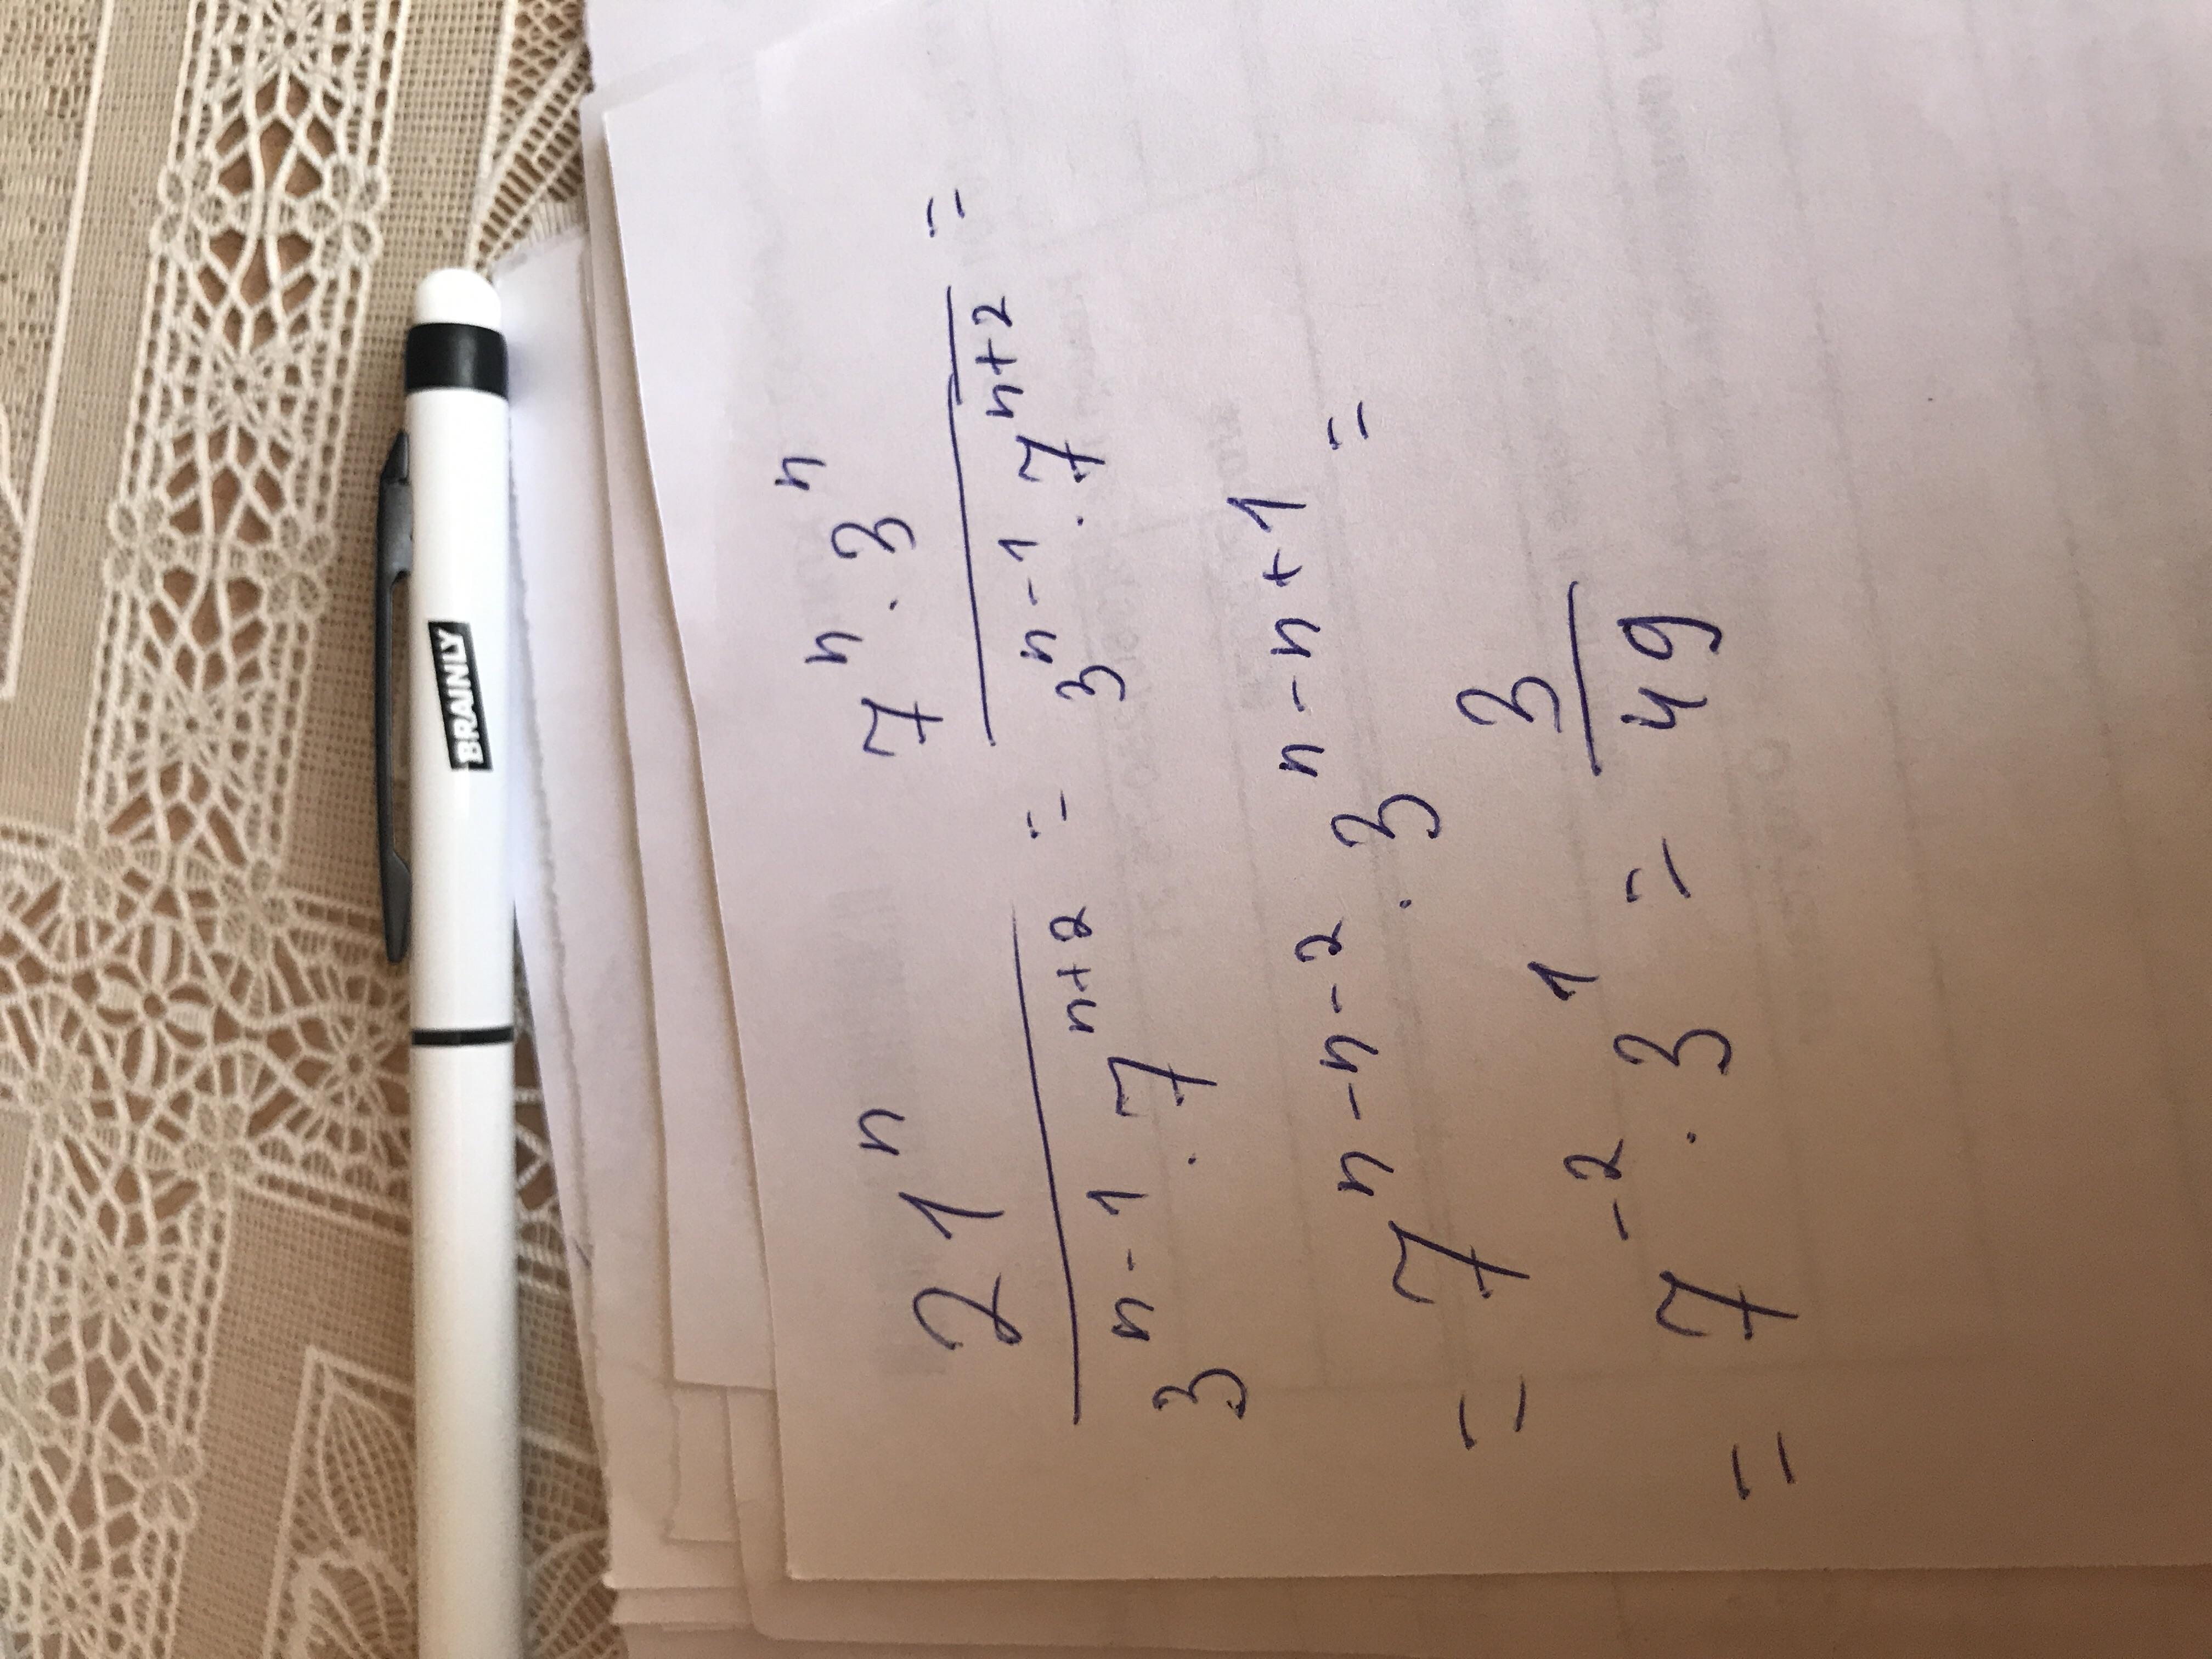 BRAINLY
21^n / (3^(n-1) · 7^(n+2)) = (7^n · 3^n) / (3^(n-1) · 7^(n+2)) =
= 7^(n-n-2) · 3^(n-n+1) =
= 7^(-2) · 3^1 = 3/49